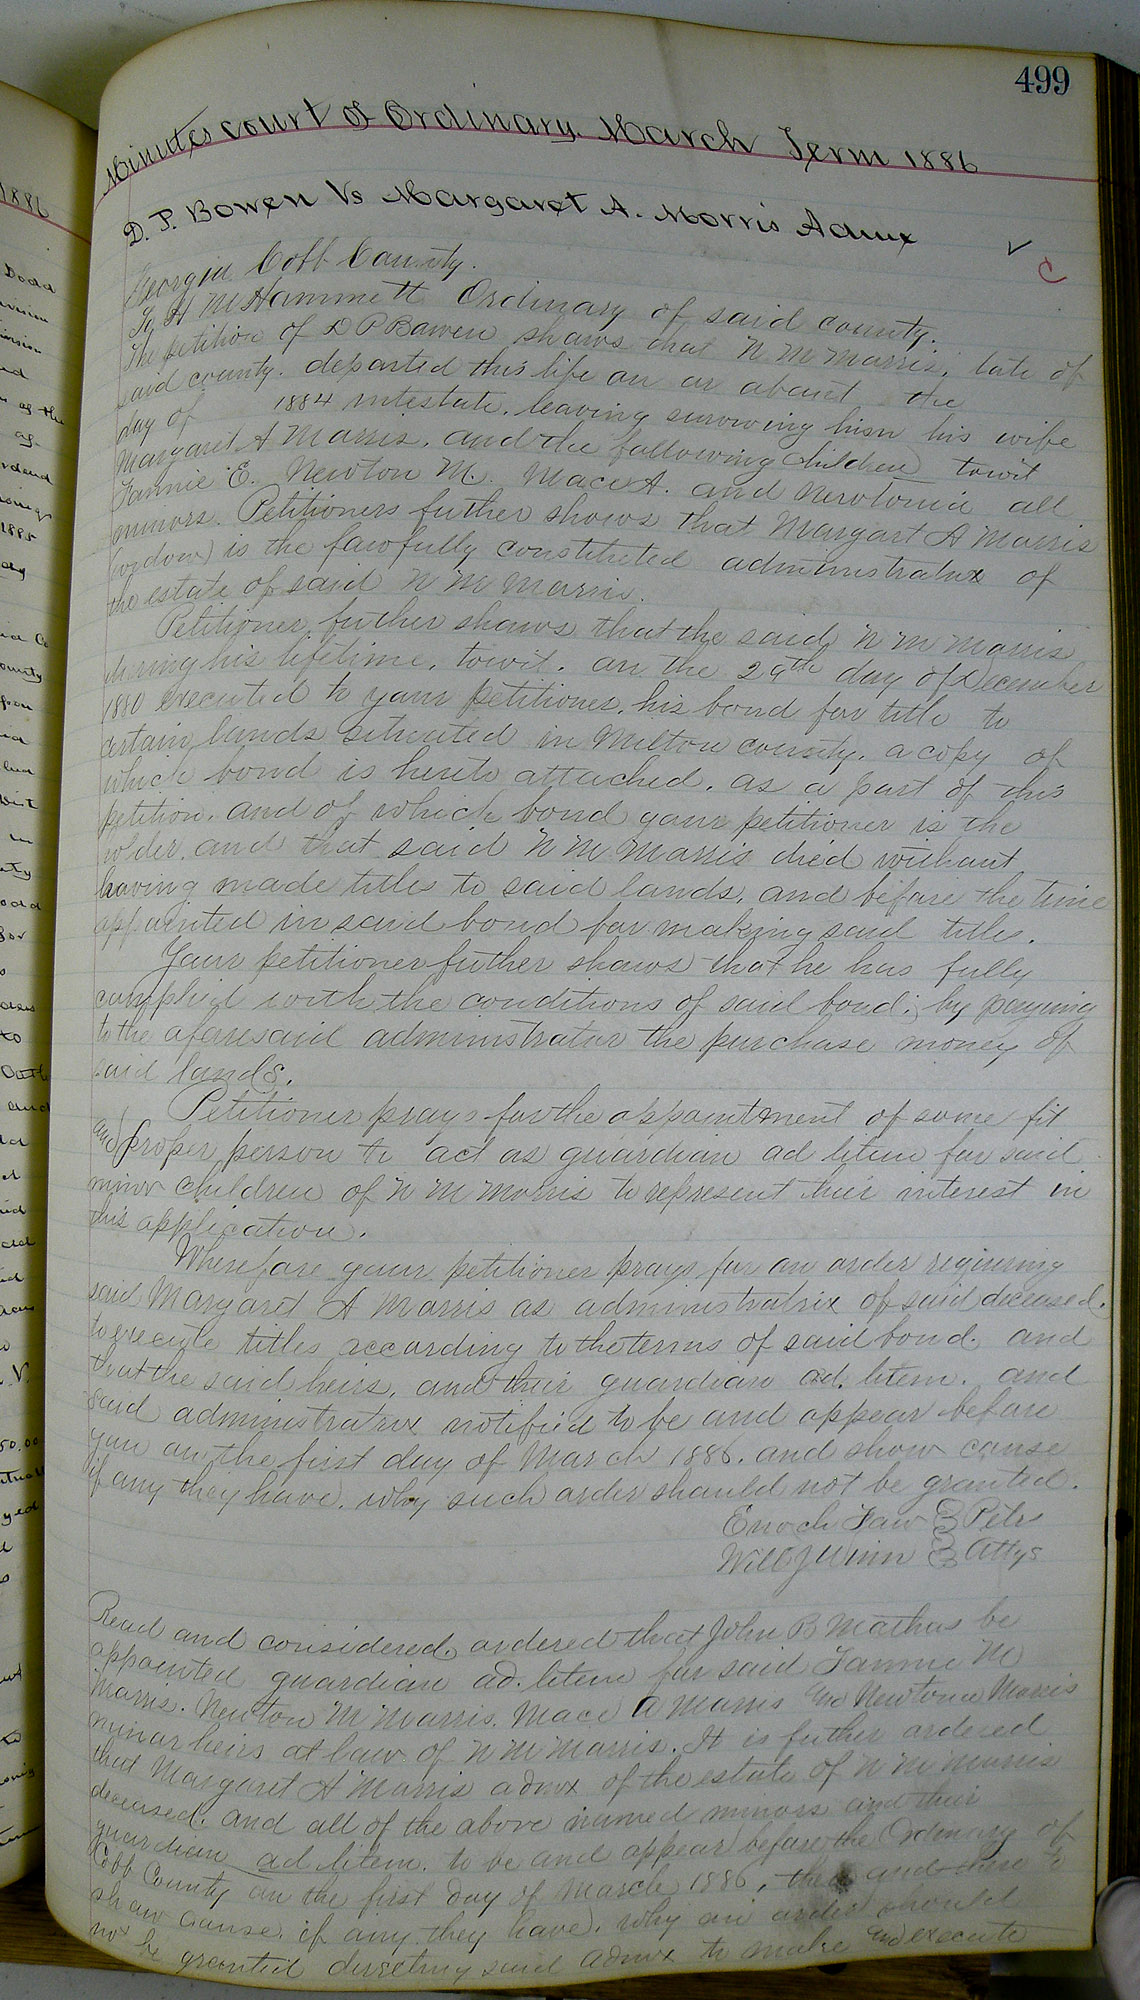 499
Minutes court of Ordinary. March Term 1886
D. P. Bowen Vs Margaret A. Morris Admx
Georgia Cobb County.
To H M Hammett Ordinary of said county.
The petition of D P Bowen shows that N M Morris, late of
said county. departed this life on or about the
day of 1884 intestate. leaving surviving him his wife
Margaret A Morris. and the following children towit
Fannie E. Newton M. Mace A. and Newtonia all
minors. Petitioners futher shows that Margart A Morris
(widow) is the lawfully constituted administratrix of
the estate of said N M Morris.
Petitioner futher shows that the said N M Morris
during his lifetime. towit. on the 29th day of December
1880 executed to your petitioner, his bond for title to
certain lands situated in Milton county. a copy of
which bond is hereto attached. as a part of this
petition. and of which bond your petitioner is the
holder. and that said N M Morris died without
having made titles to said lands. and before the time
appointed in said bond for making said titles.
Your petitioner futher shows that he has fully
complied with the conditions of said bond; by paying
to the aforesaid administrator the purchase money of
said lands.
Petitioner prays for the appointment of some fit
and proper person to act as guardian ad litem for said
minor children of N M Morris to represent their interest in
this application.
Wherefore your petitioner prays for an order requiring
said Margaret A Morris as administratrix of said deceased.
to execute titles according to the terms of said bond. and
that the said heirs, and their guardian ad. litem. and
said administratrix notified to be and appear before
you on the first day of March 1886. and show cause
if any they have. why such order should not be granted.
Enoch Faw } Petrs
Will J Winn } Attys
Read and considered. ordered that John B Mathus be
appointed guardian ad. litem for said Fannie M
Morris. Newton M Morris. Mace A Morris and Newtonia Morris
minor heirs at law of N M Morris. It is futher ordered
that Margaret A Morris admx of the estate of N M Morris
deceased. and all of the above named minors and their
guardian ad litem. to be and appear before the Ordinary of
Cobb County on the first day of March 1886, then and there to
show cause. if any they have. why an order should
not be granted directing said admx to make and execute